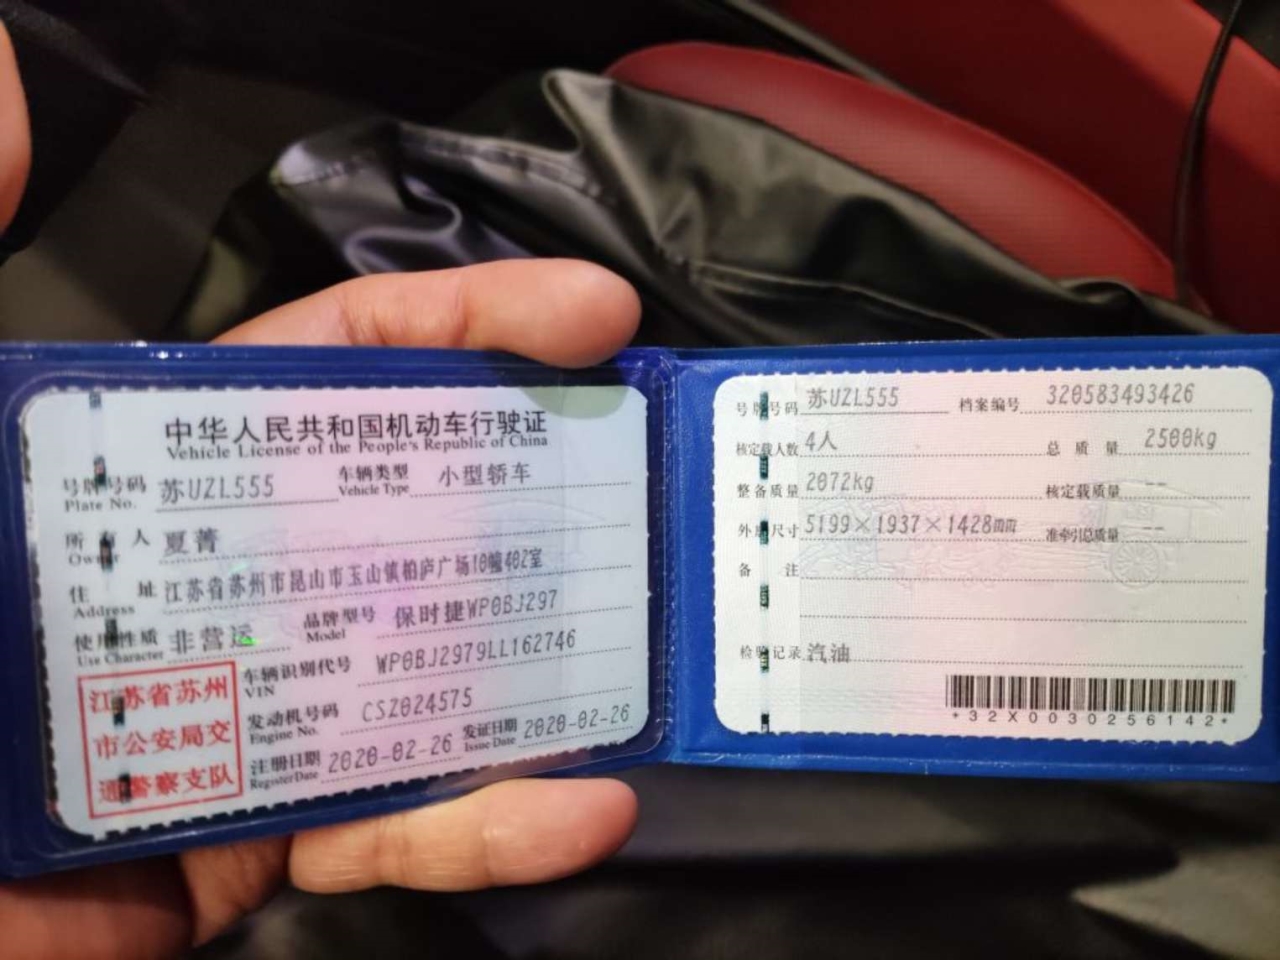 中华人民共和国机动车行驶证
Vehicle License of the People's Republic of China
号牌号码 苏UZL555 车辆类型 小型轿车
Plate No. Vehicle Type
所有人 夏菁
Owner
住址 江苏省苏州市昆山市玉山镇柏庐广场10幢402室
Address
使用性质 非营运 品牌型号 保时捷WP0BJ297
Use Character Model
车辆识别代号 WP0BJ2979LL162746
VIN
发动机号码 CSZ024575
Engine No.
注册日期 2020-02-26 发证日期 2020-02-26
Register Date Issue Date
江苏省苏州
市公安局交
通警察支队
号牌号码 苏UZL555 档案编号 320583493426
核定载人数 4人 总质量 2500kg
整备质量 2072kg 核定载质量 --
外廓尺寸 5199×1937×1428mm 准牵引总质量 --
备注
检验记录 汽油
*32X0030256142*